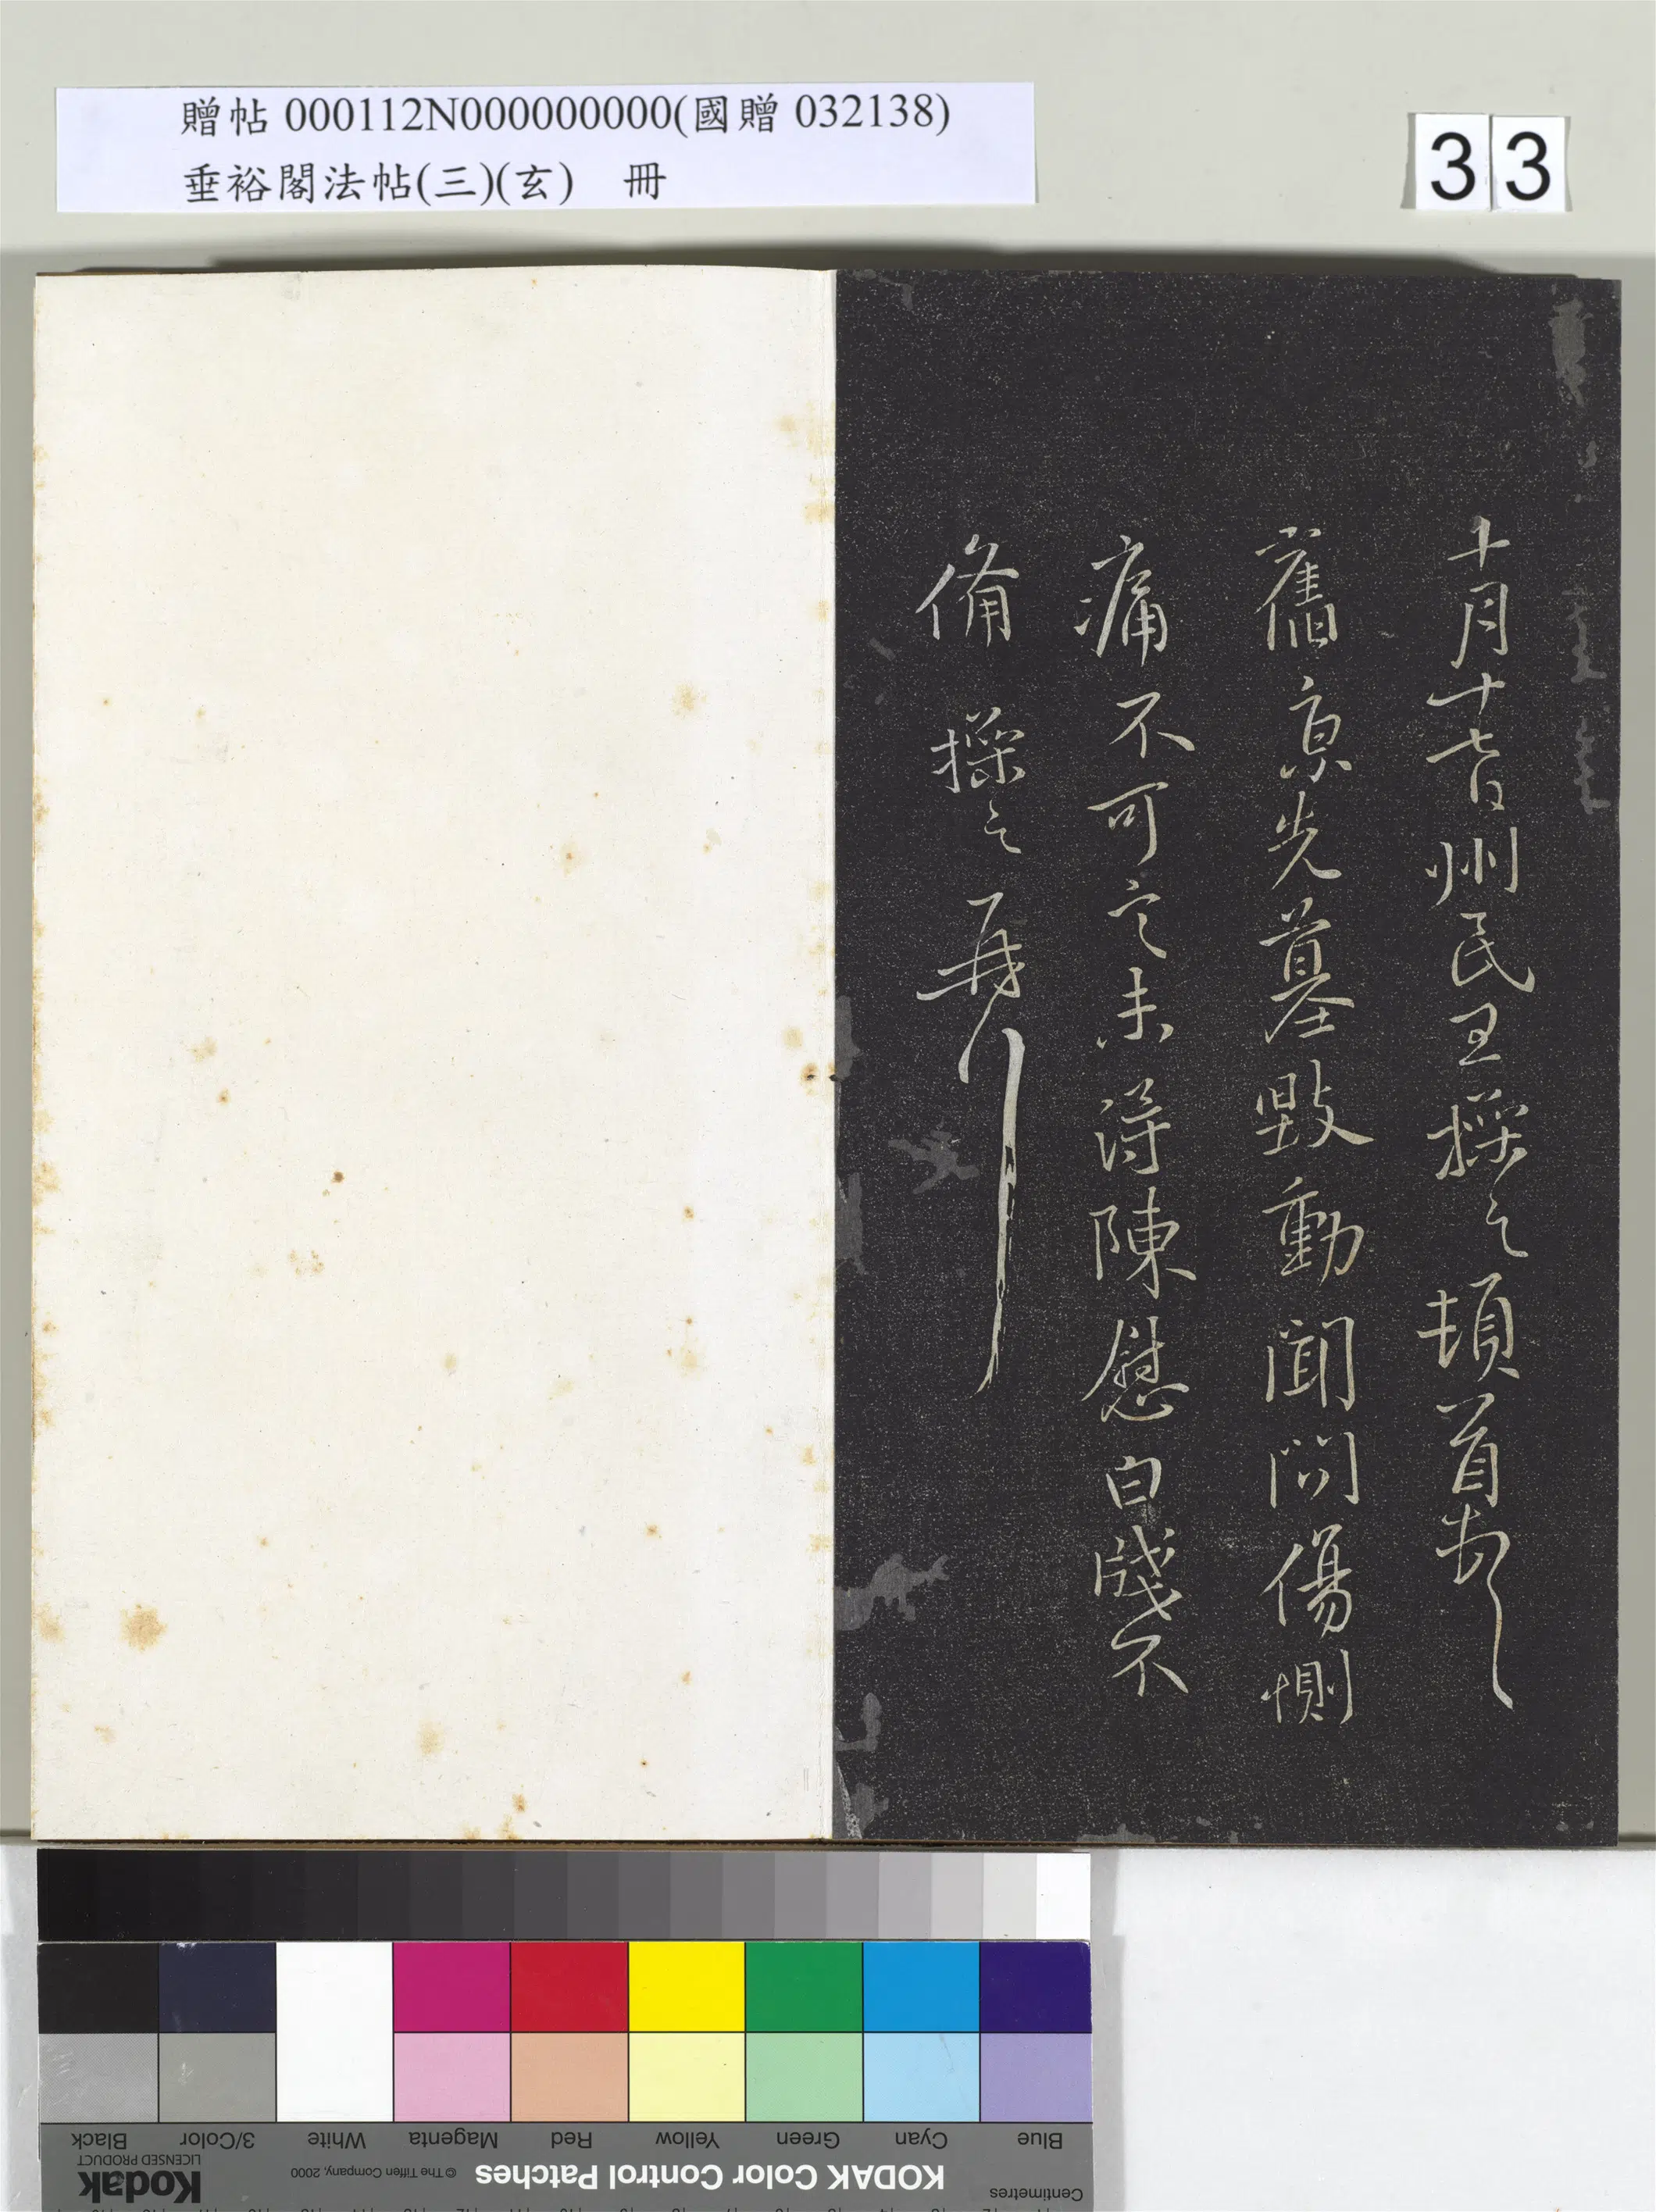 贈帖 000112N000000000(國贈 032138)
垂裕閣法帖(三)(玄) 冊
33
十月十七日州民王操之頓首
舊京先墓毀動聞問傷惻
痛不可言未得陳慰白牋不
備 操之再拜
Blue Cyan Green Yellow Red Magenta White 3/Color Black
Centimetres KODAK Color Control Patches © The Tiffen Company, 2000 Kodak
LICENSED PRODUCT